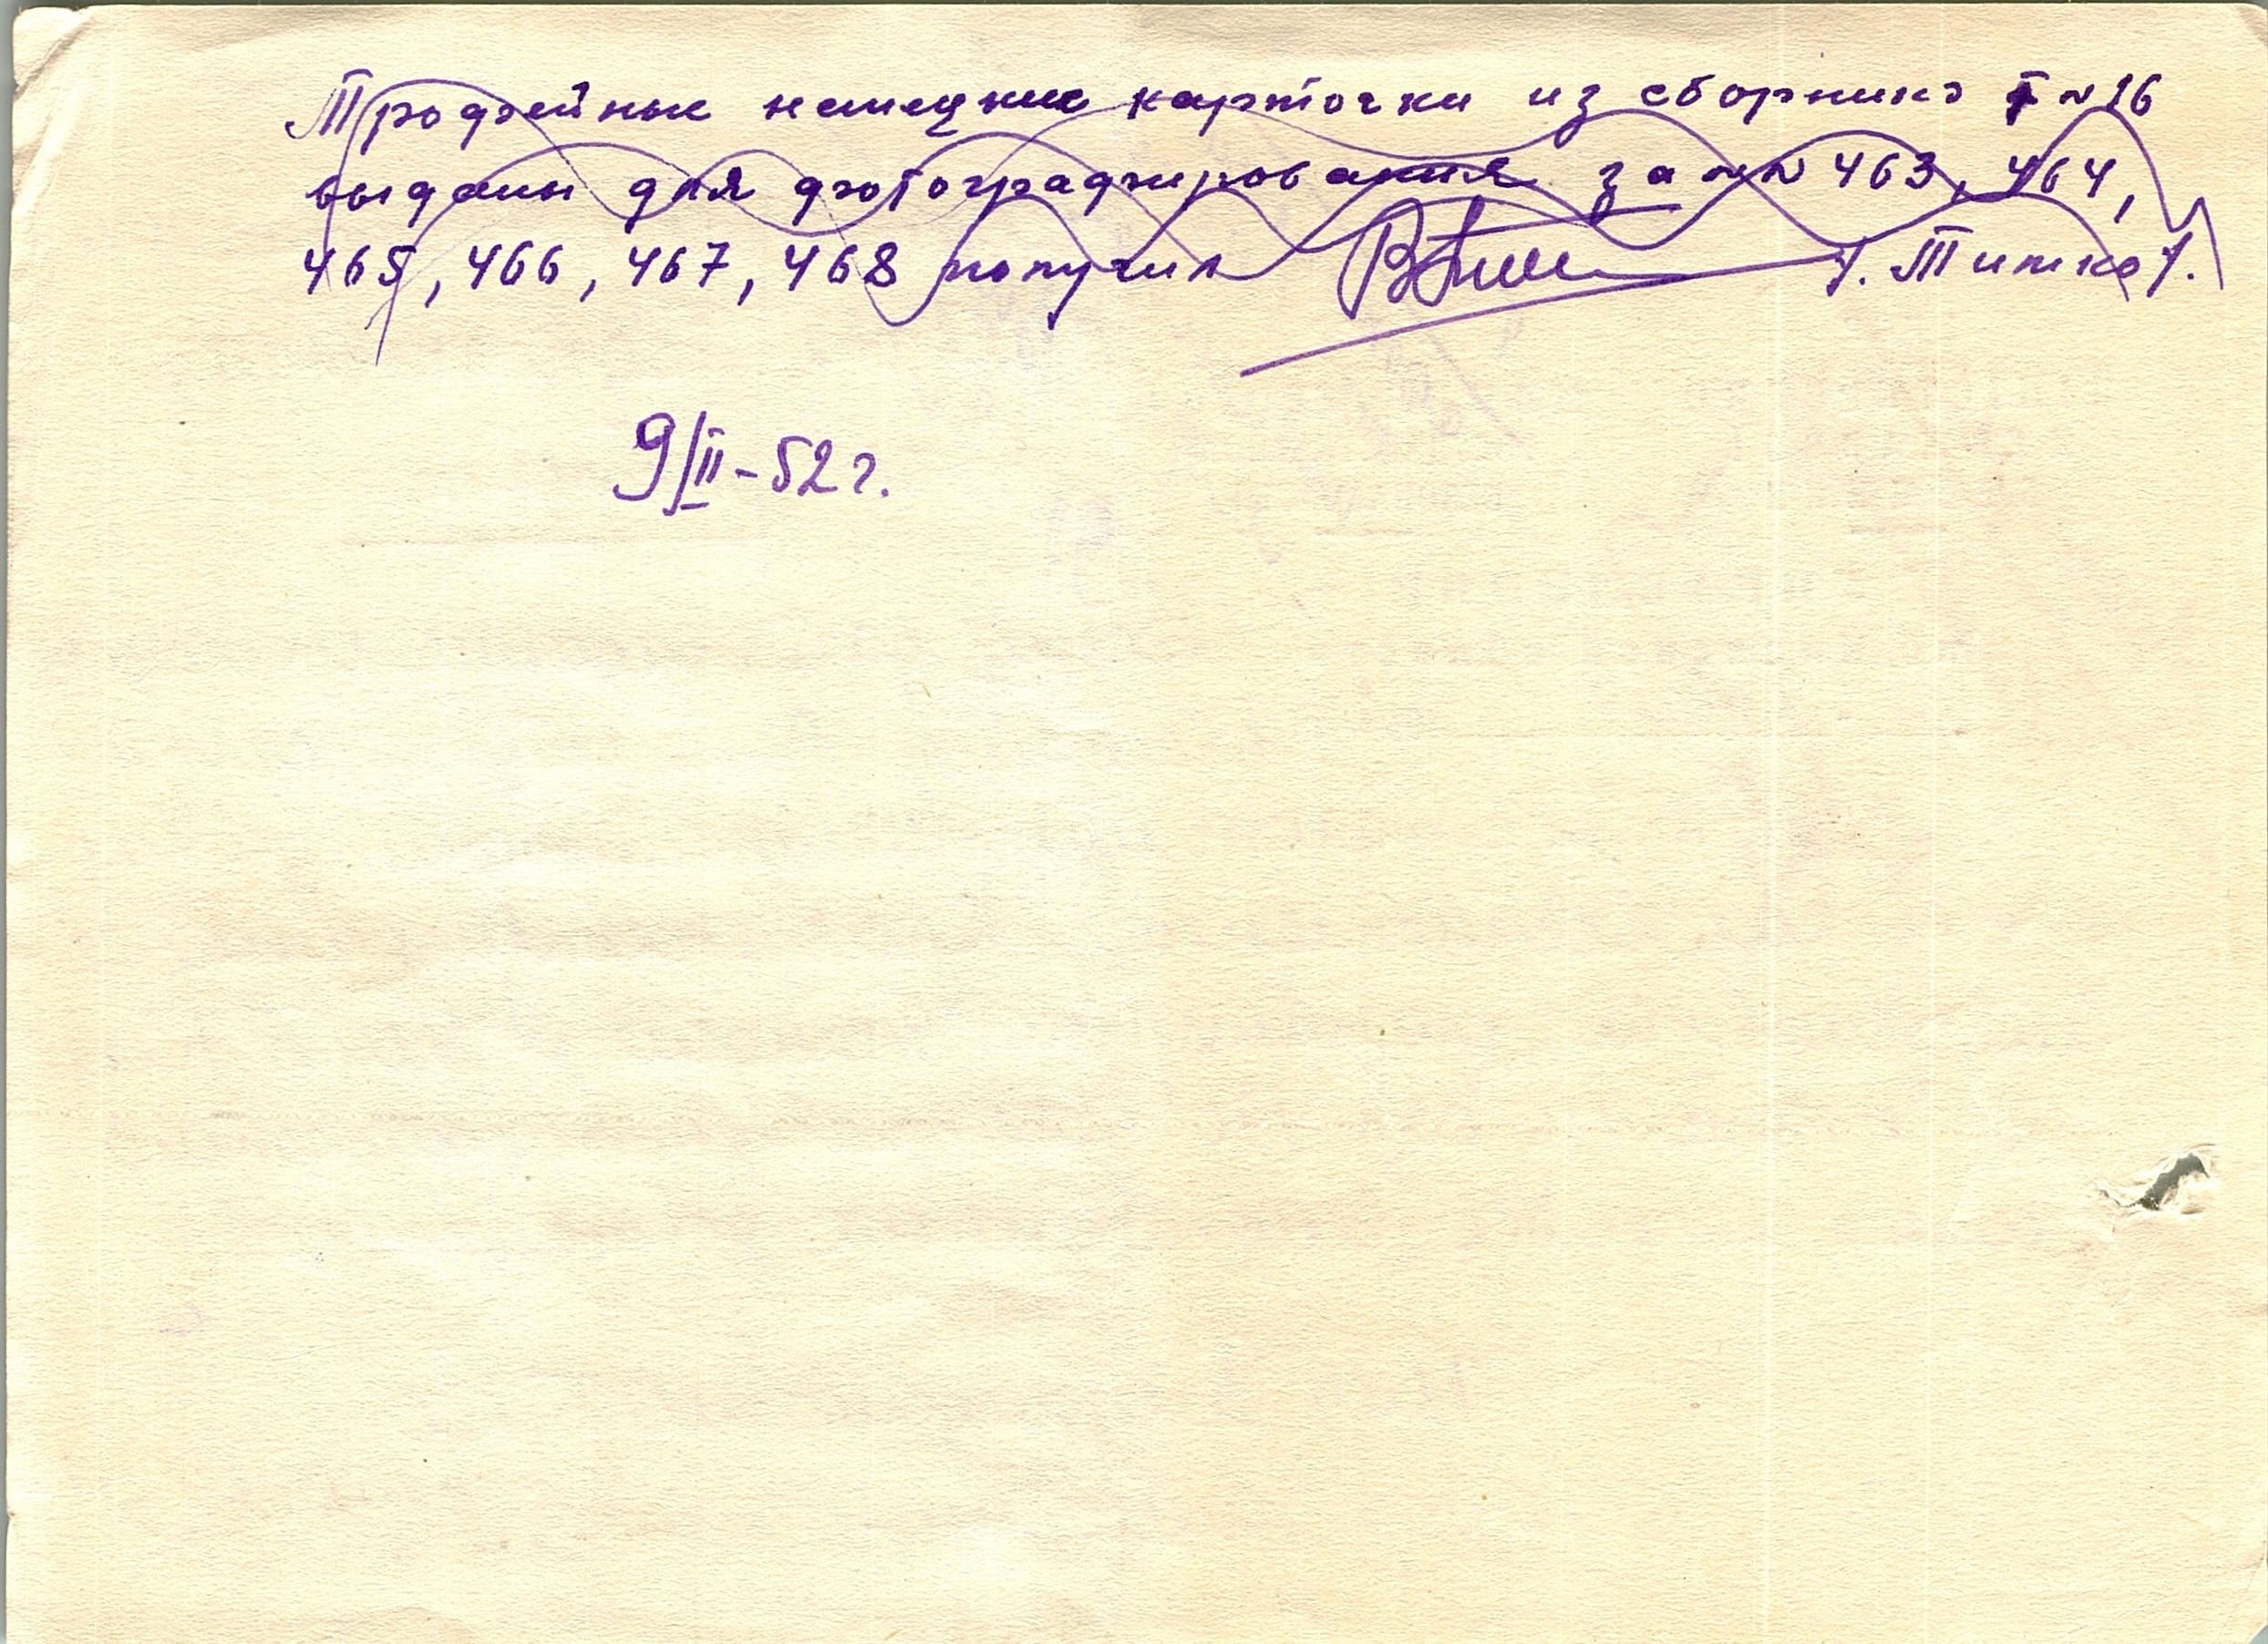 Трофейные немецкие карточки из сборника № 26
выданы для фотографирования за №№ 463, 464,
465, 466, 467, 468 получил
9/II-52 г.